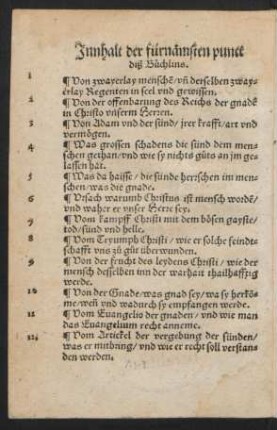 Jnnhalt der fürnämsten punct
diß Büchlins.
1 ¶ Von zwayerlay menschē/ vñ derselben zway-
erlay Regenten in seel vnd gewissen.
2 ¶ Von der offenbarung des Reichs der gnadē
in Christo vnserm Herren.
3 ¶ Von Adam vnd der sünd/ jrer krafft/ art vnd
vermögen.
4 ¶ Was grossen schadens die sünd dem men-
schen gethan/ vnd wie sy nichts gůts an jm ge-
lassen hat.
5 ¶ Was da haisse/ die sünde herrschen im men-
schen/ was die gnade.
6 ¶ Vrsach warumb Christus ist mensch wordē/
vnd waher er vnser Herr sey.
7 ¶ Vom kampff Christi mit dem bösen gayste/
tod/ sünd vnd helle.
8 ¶ Vom Tryumph Christi/ wie er solche feindt-
schafft vns zů gůt überwunden.
9 ¶ Von der frucht des leydens Christi/ wie der
mensch desselben inn der warhait thailhafftig
werde.
10 ¶ Von der Gnade/ was gnad sey/ wa sy herkō-
me/ weñ vnd wadurch sy empfangen werde.
11 ¶ Vom Euangelio der gnaden/ vnd wie man
das Euangelium recht anneme.
12 ¶ Vom Artickel der vergebung der sünden/
was er mitbring/ vnd wie er recht soll verstan-
den werden.